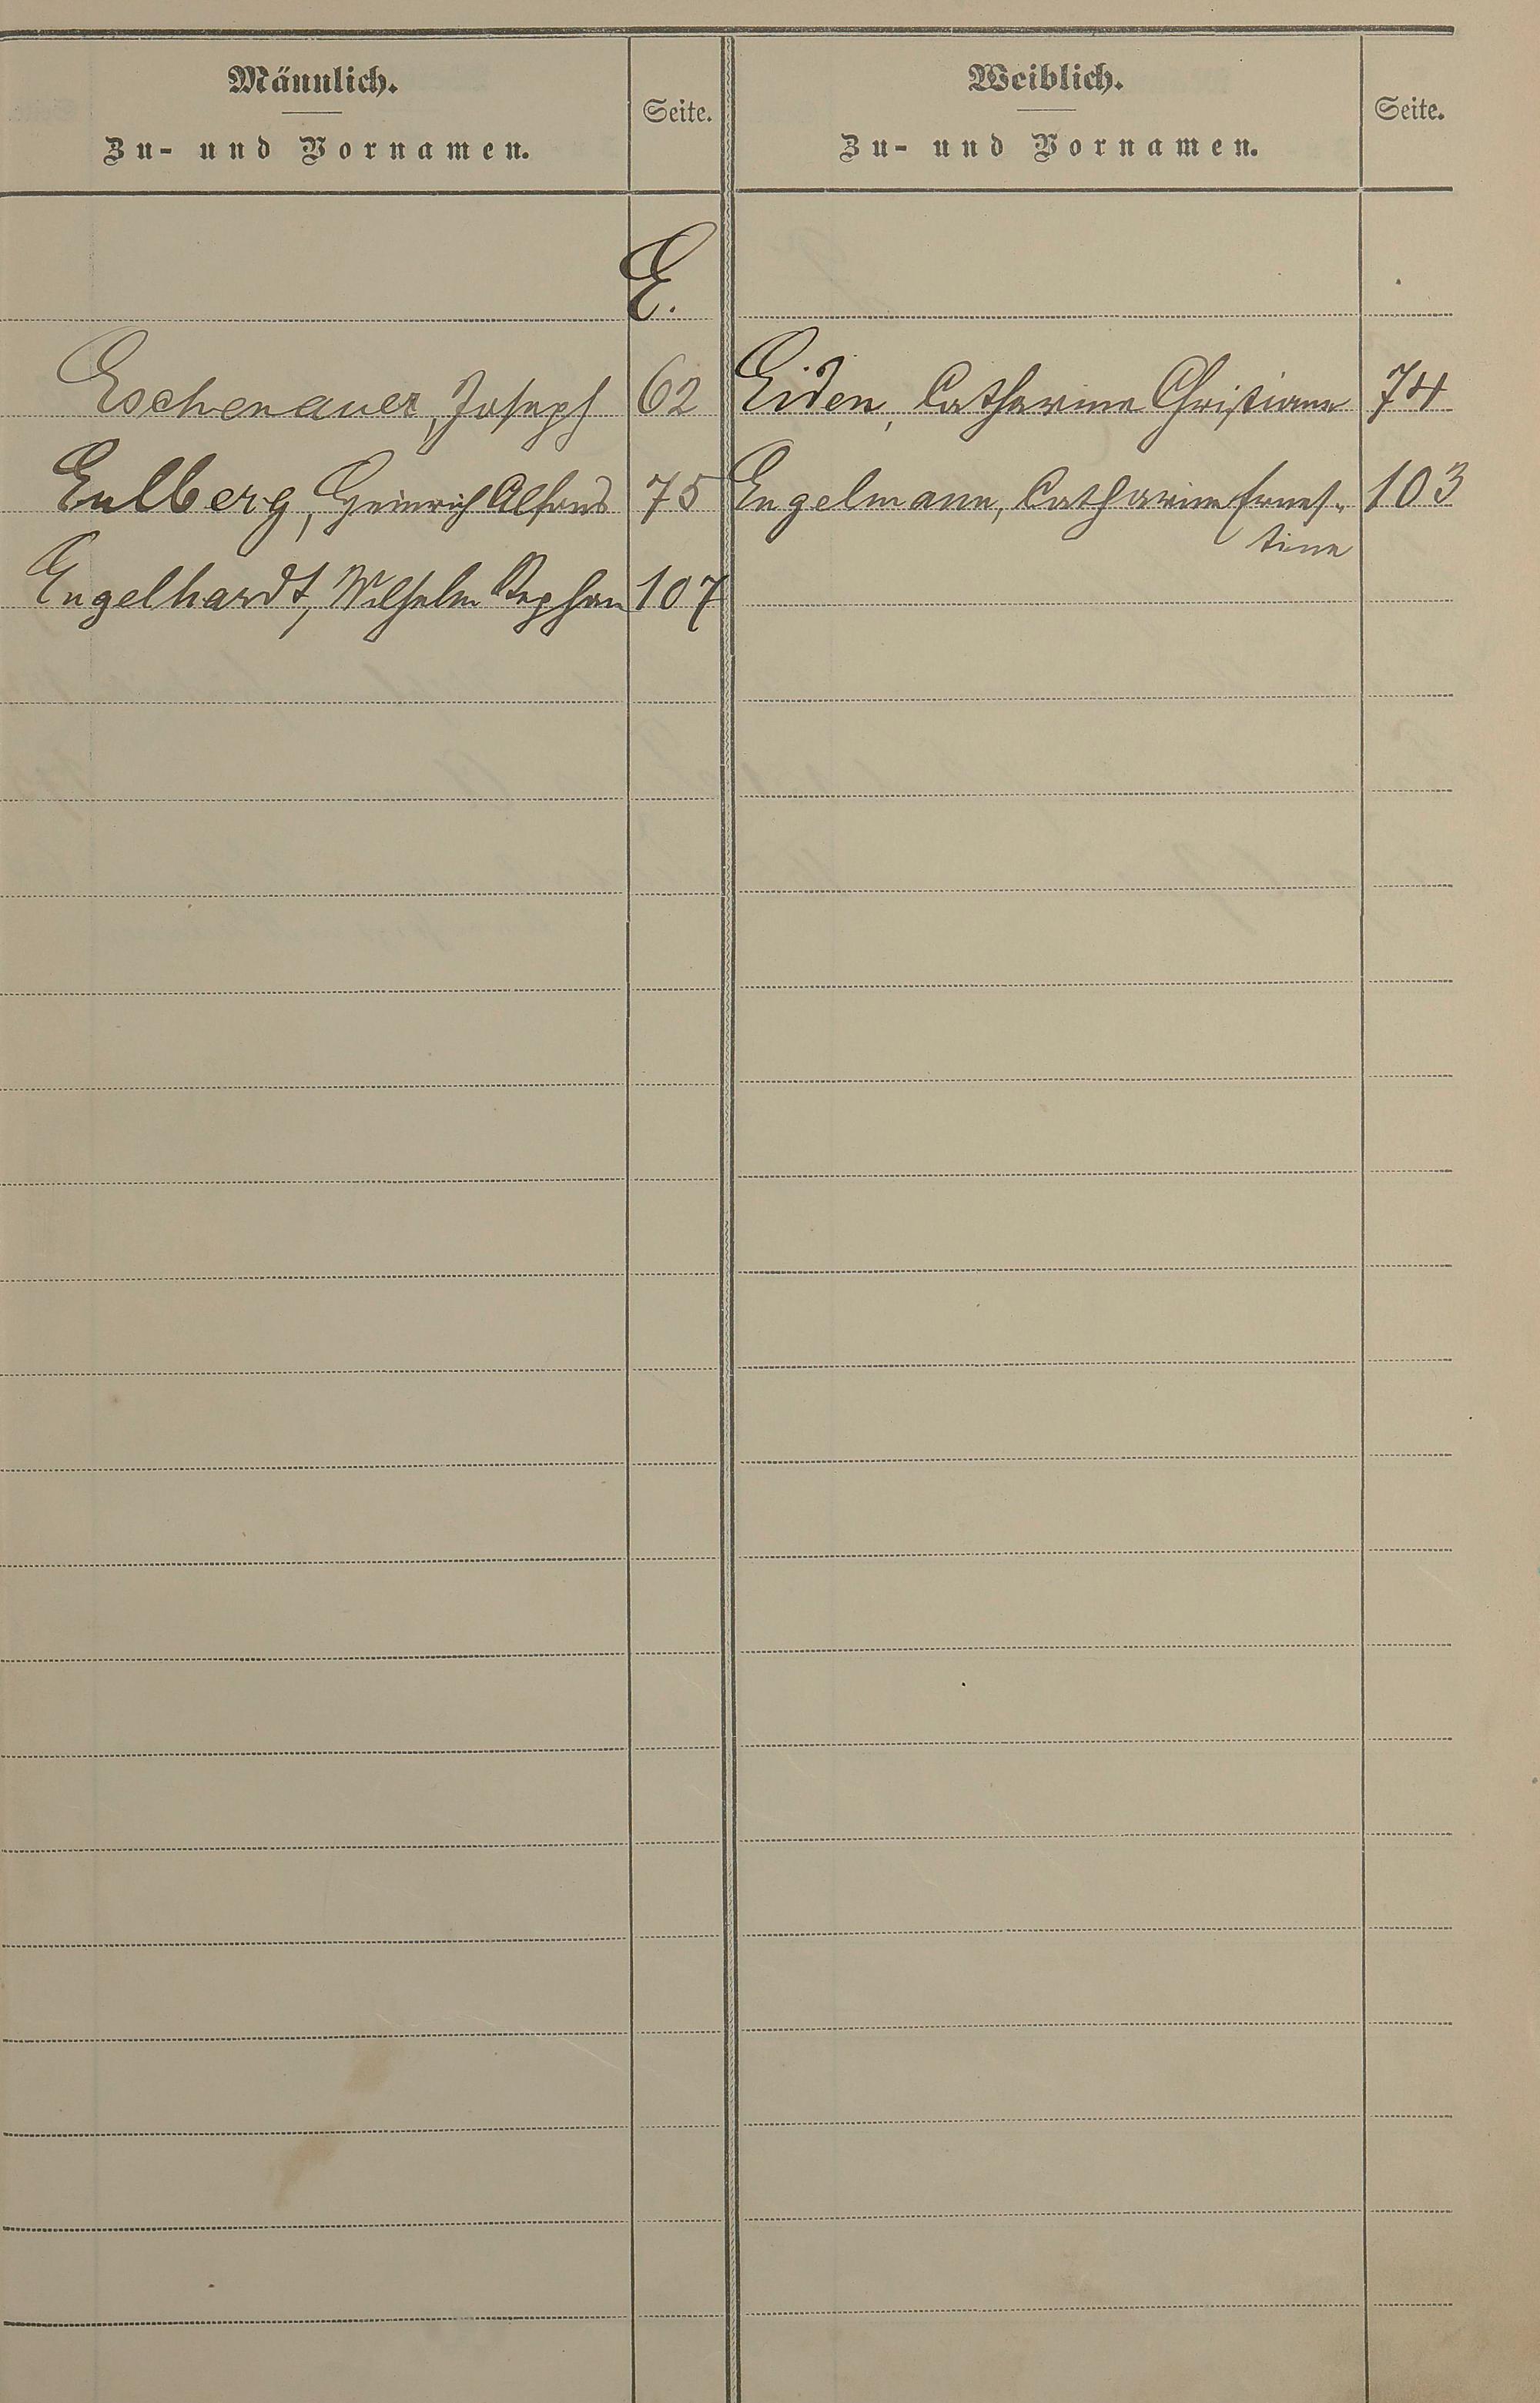 Männlich.
Zu- und Vornamen.
Seite.
Weiblich.
Zu- und Vornamen.
Seite.
E.
Eschenauer, Joseph 62
Eulberg, Heinrich Alfons 75
Engelhardt, Wilhelm Stephan 107
Eiden, Catharina Christiane 74
Engelmann, Catharina Ernes- 103
tine